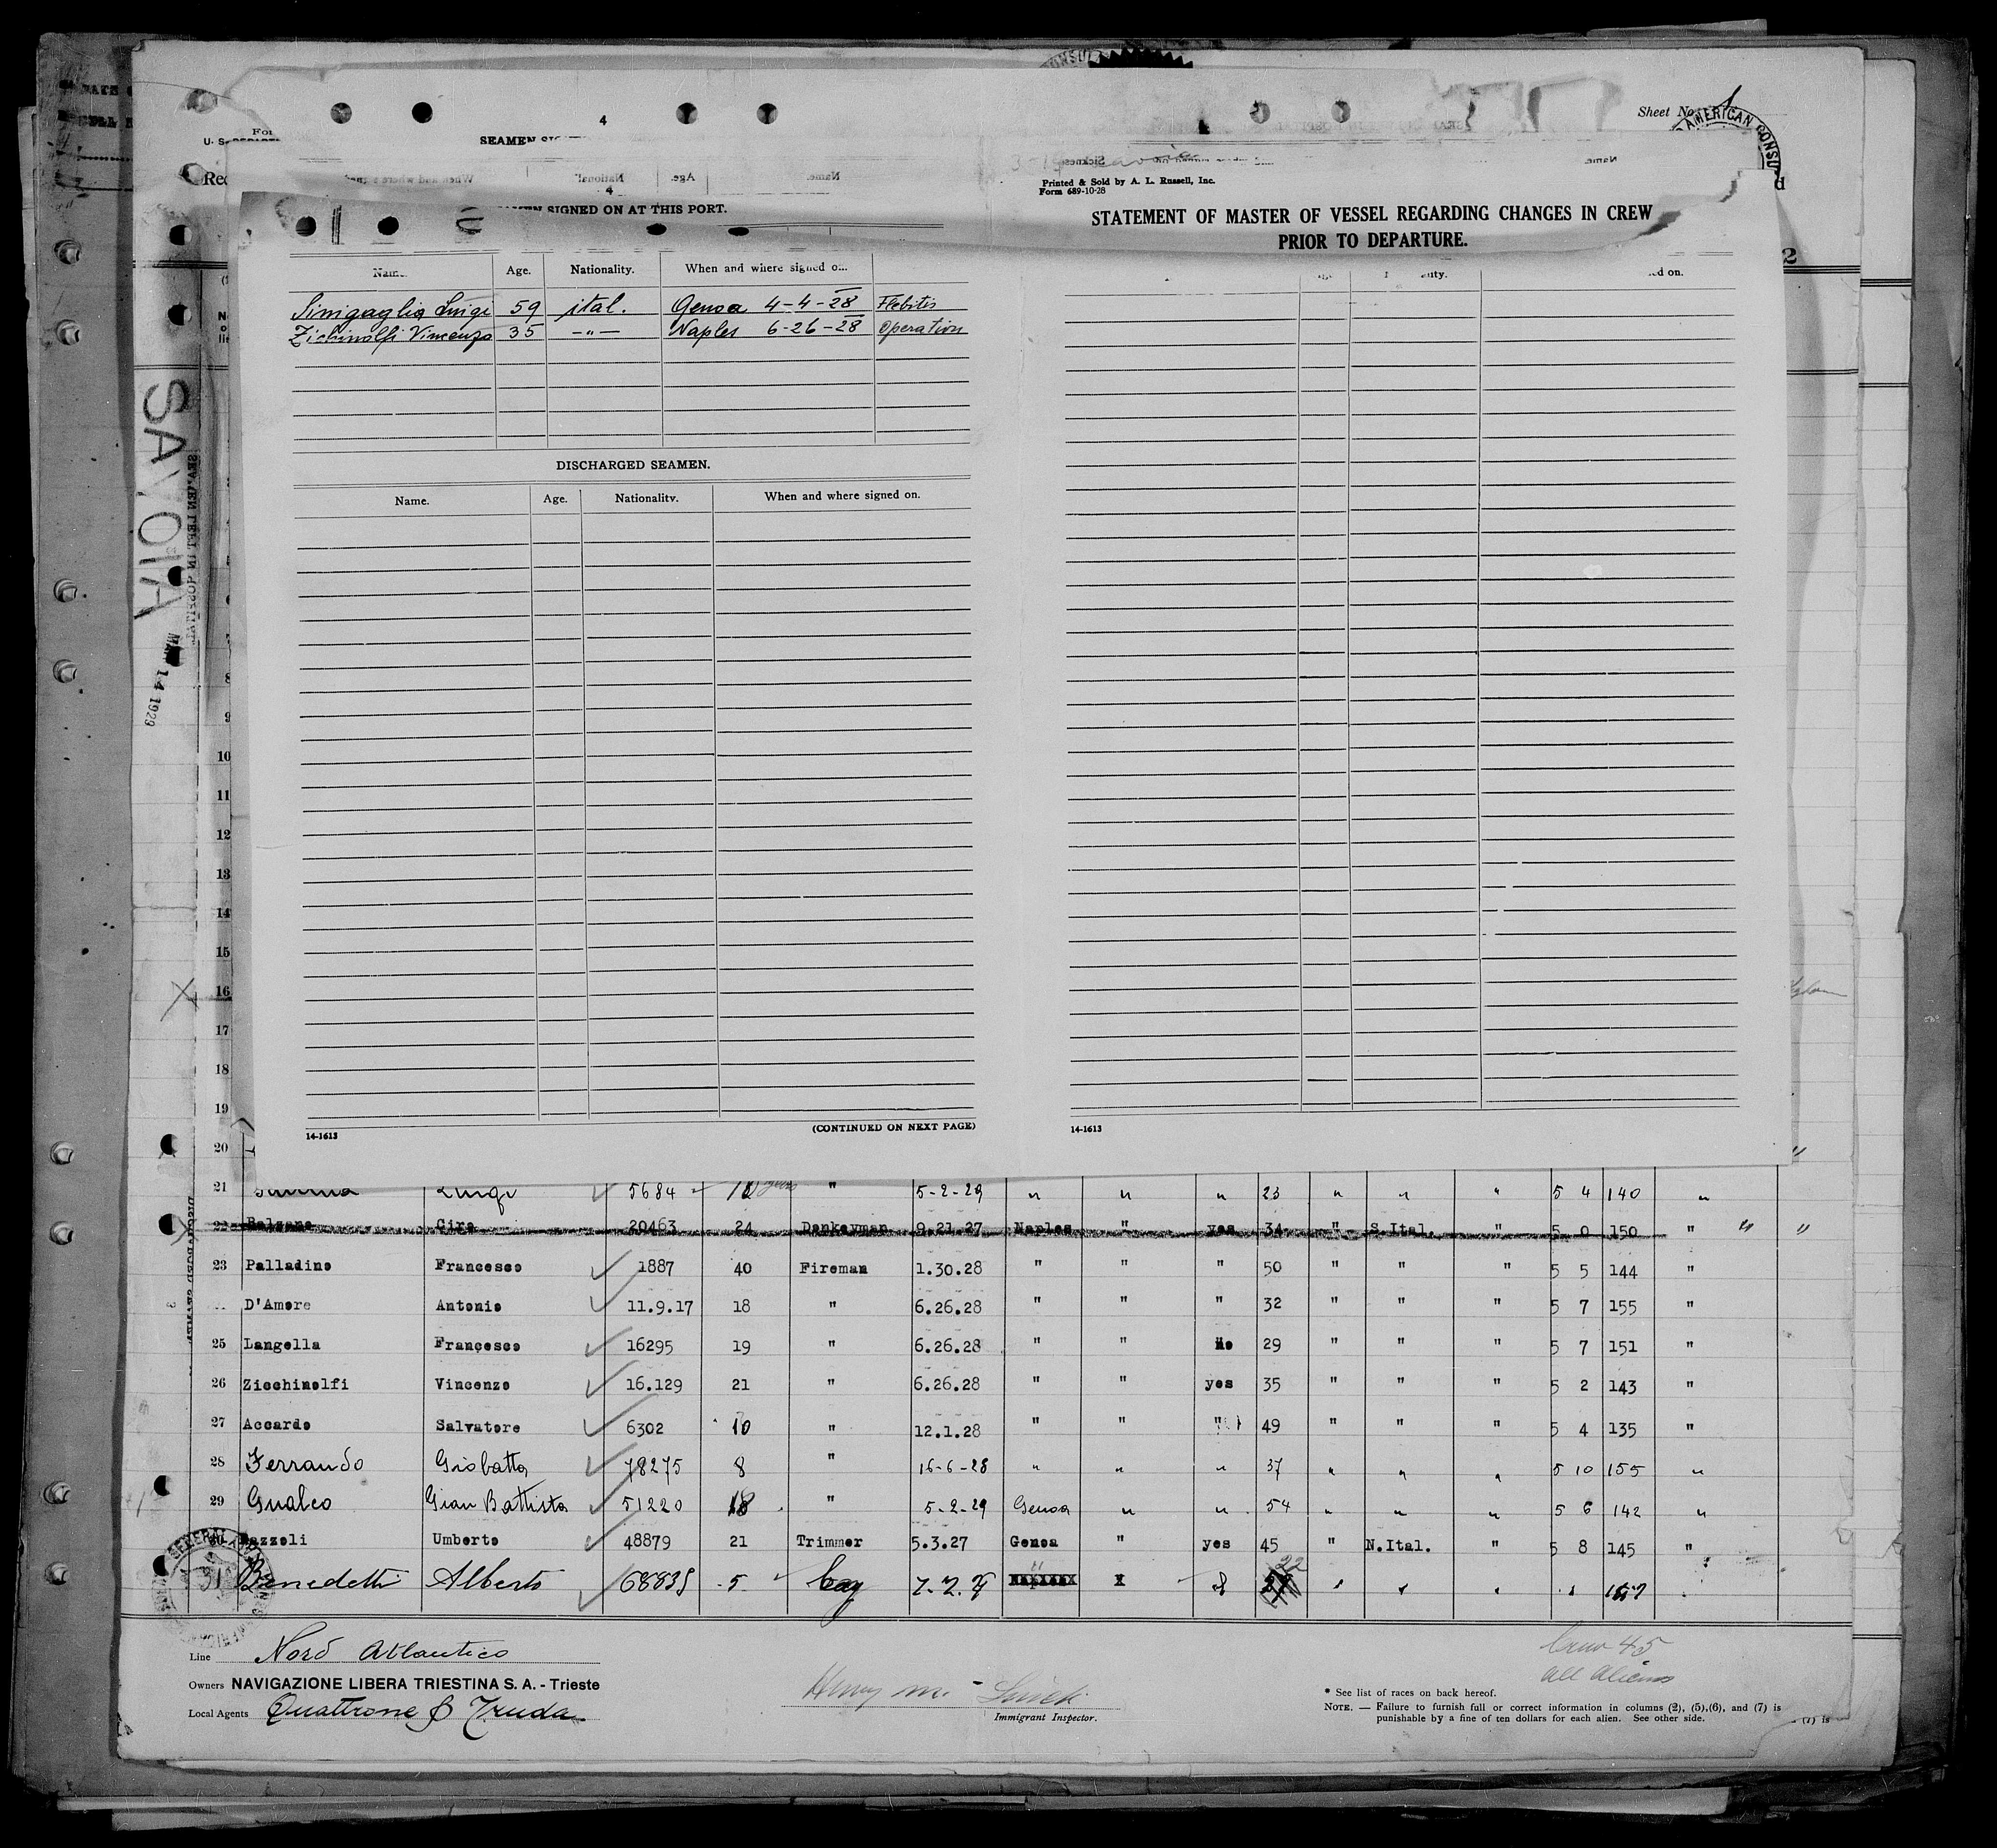 4
Sheet No. 1
AMERICAN CONSU
SEAMEN
Printed & Sold by A. L. Russell, Inc.
Form 689-10-28
4
SIGNED ON AT THIS PORT.
STATEMENT OF MASTER OF VESSEL REGARDING CHANGES IN CREW
PRIOR TO DEPARTURE.
Age. Nationality. When and where signed on.
Sinigaglia Luigi 59 ital. Genoa 4-4-28 Flebitis
Zichinolfi Vincenzo 35 -"- Naples 6-26-28 Operation
DISCHARGED SEAMEN.
Name. Age. Nationality. When and where signed on.
SAVOIA
MAR 14 1929
10
11
12
13
14
15
16
17
18
19
14-1613 (CONTINUED ON NEXT PAGE) 14-1613
20
21 Luigi 5684 " 5-2-29 " " " 23 " " " 5 4 140 "
22 Balzano Ciro 20463 24 Donkeyman 9.21.27 Naples " yes 34 " S.Ital. " 5 0 150 " " "
23 Palladino Francesco 1887 40 Fireman 1.30.28 " " " 50 " " " 5 5 144 "
D'Amore Antonio 11.9.17 18 " 6.26.28 " " " 32 " " " 5 7 155 "
25 Langella Francesco 16295 19 " 6.26.28 " " No 29 " " " 5 7 151 "
26 Zicchinolfi Vincenzo 16.129 21 " 6.26.28 " " yes 35 " " " 5 2 143 "
27 Accardo Salvatore 6302 10 " 12.1.28 " " " 49 " " " 5 4 135 "
28 Ferrando Giobatta 78275 8 " 16-6-28 " " " 37 " " " 5 10 155 "
29 Gualco Gian Battista 51220 18 " 5-2-29 Genoa " " 54 " " " 5 6 142 "
30 Umberto 48879 21 Trimmer 5.3.27 Genoa " yes 45 " N.Ital. " 5 8 145 "
31 Benedetti Alberto 68835 5 boy 22
Line Nord Atlantico
Owners NAVIGAZIONE LIBERA TRIESTINA S. A. - Trieste
Local Agents Quattrone & Truda
Henry M.
Immigrant Inspector.
Crew 45
all aliens
* See list of races on back hereof.
NOTE. — Failure to furnish full or correct information in columns (2), (5),(6), and (7) is
punishable by a fine of ten dollars for each alien. See other side.